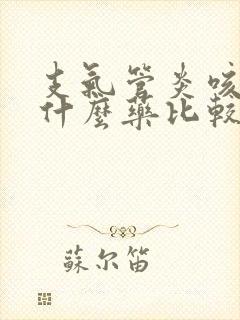 支氣管炎咳
什麼藥比較
蘇尔笛